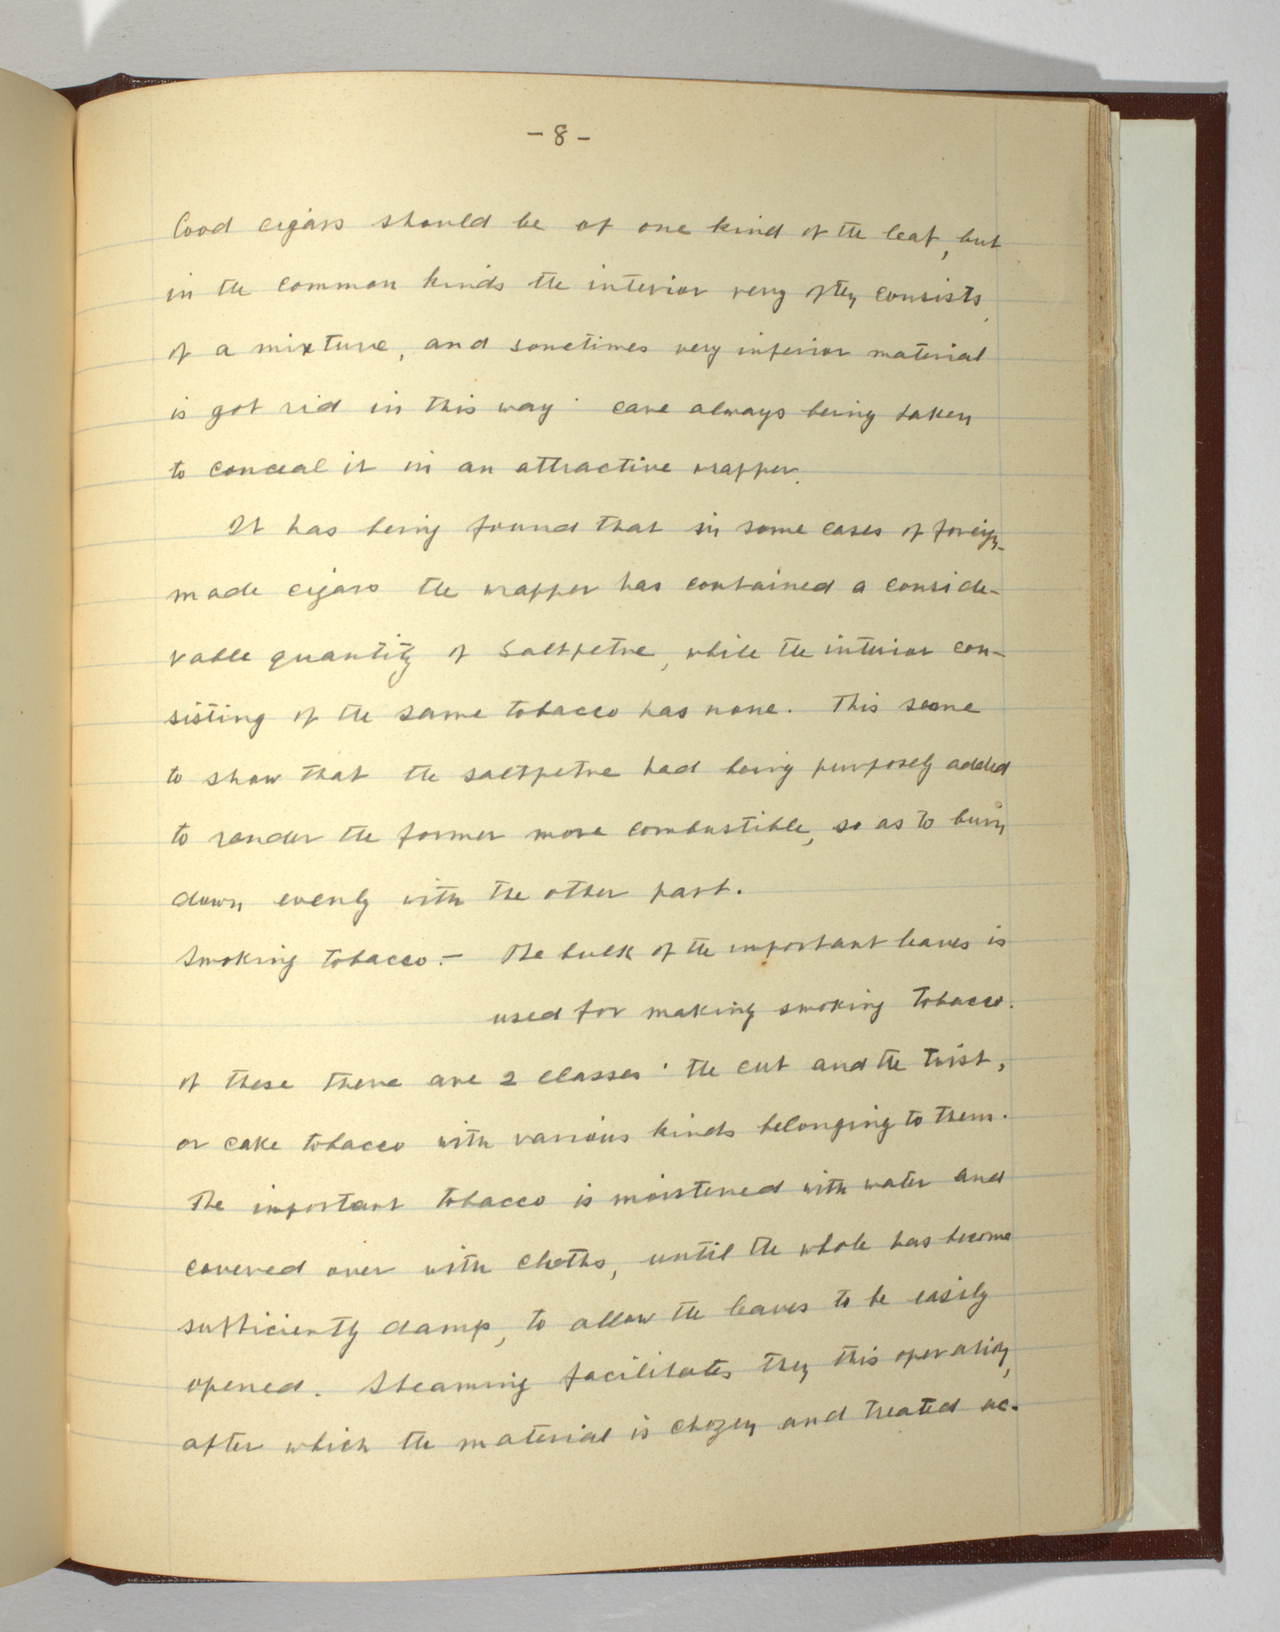 - 8 -
Good cigars should be of one kind of the leaf, but
in the common kinds the interior very often consists
of a mixture, and sometimes very inferior material
is got rid in this way · care always being taken
to conceal it in an attractive wrapper.
It has being found that in some cases of foreign-
made cigars the wrapper has contained a conside-
rable quantity of Saltpetre, while the interior con-
sisting of the same tobacco has none. This seems
to show that the saltpetre had being purposely added
to render the former more combustible, so as to burn
down evenly with the other part.
Smoking tobacco.- The bulk of the important leaves is
used for making smoking Tobacco.
of these there are 2 classes · the cut and the twist,
or cake tobacco with various kinds belonging to them.
The important tobacco is moistened with water and
covered over with cloths, until the whole has become
sufficiently damp, to allow the leaves to be easily
opened. Steaming facilitates then this operation,
after which the material is chozen and treated ac-